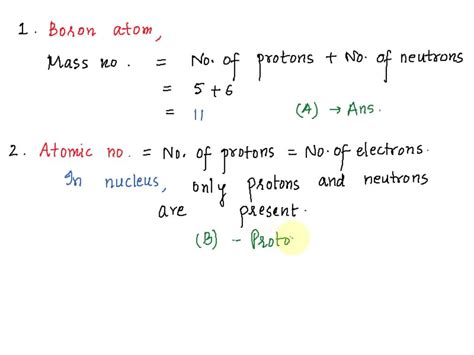 1. Boron atom,
Mass no. = No. of protons + No. of neutrons
= 5 + 6
= 11 (A) → Ans.
2. Atomic no. = No. of protons = No. of electrons.
In nucleus, only protons and neutrons
are present.
(B) - Proto